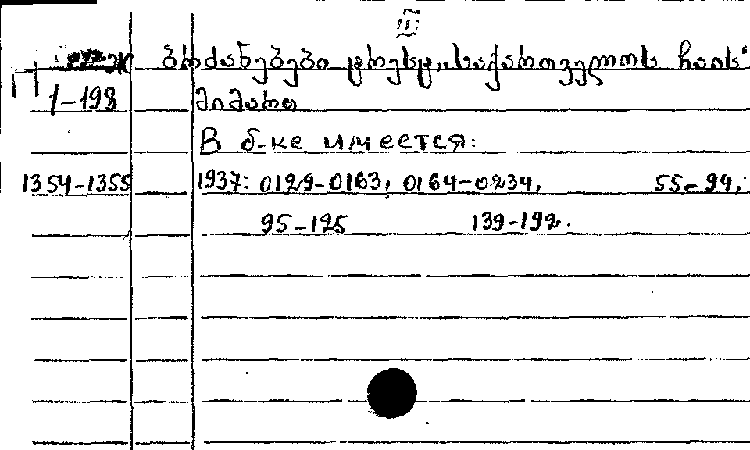 III
ბრძანებები ტრესტ „საქართველოს ჩაის“
1-198 მიმართ
В б-ке имеется:
1354-1355 1937: 0129-0163, 0164-0234, 55-94,
95-125 139-192.